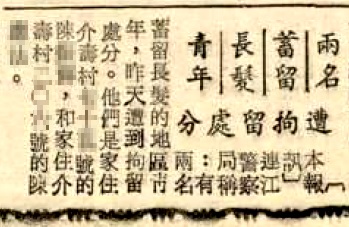 兩名
蓄留
長髮
青年
遭拘留處分
本報
訊」
連江
警察
局稱
：有
兩名
蓄留長髮的地區青
年，昨天遭到拘留
處分。他們是家住
介壽村十號的
陳，和家住介
壽村〇六號的陳
。